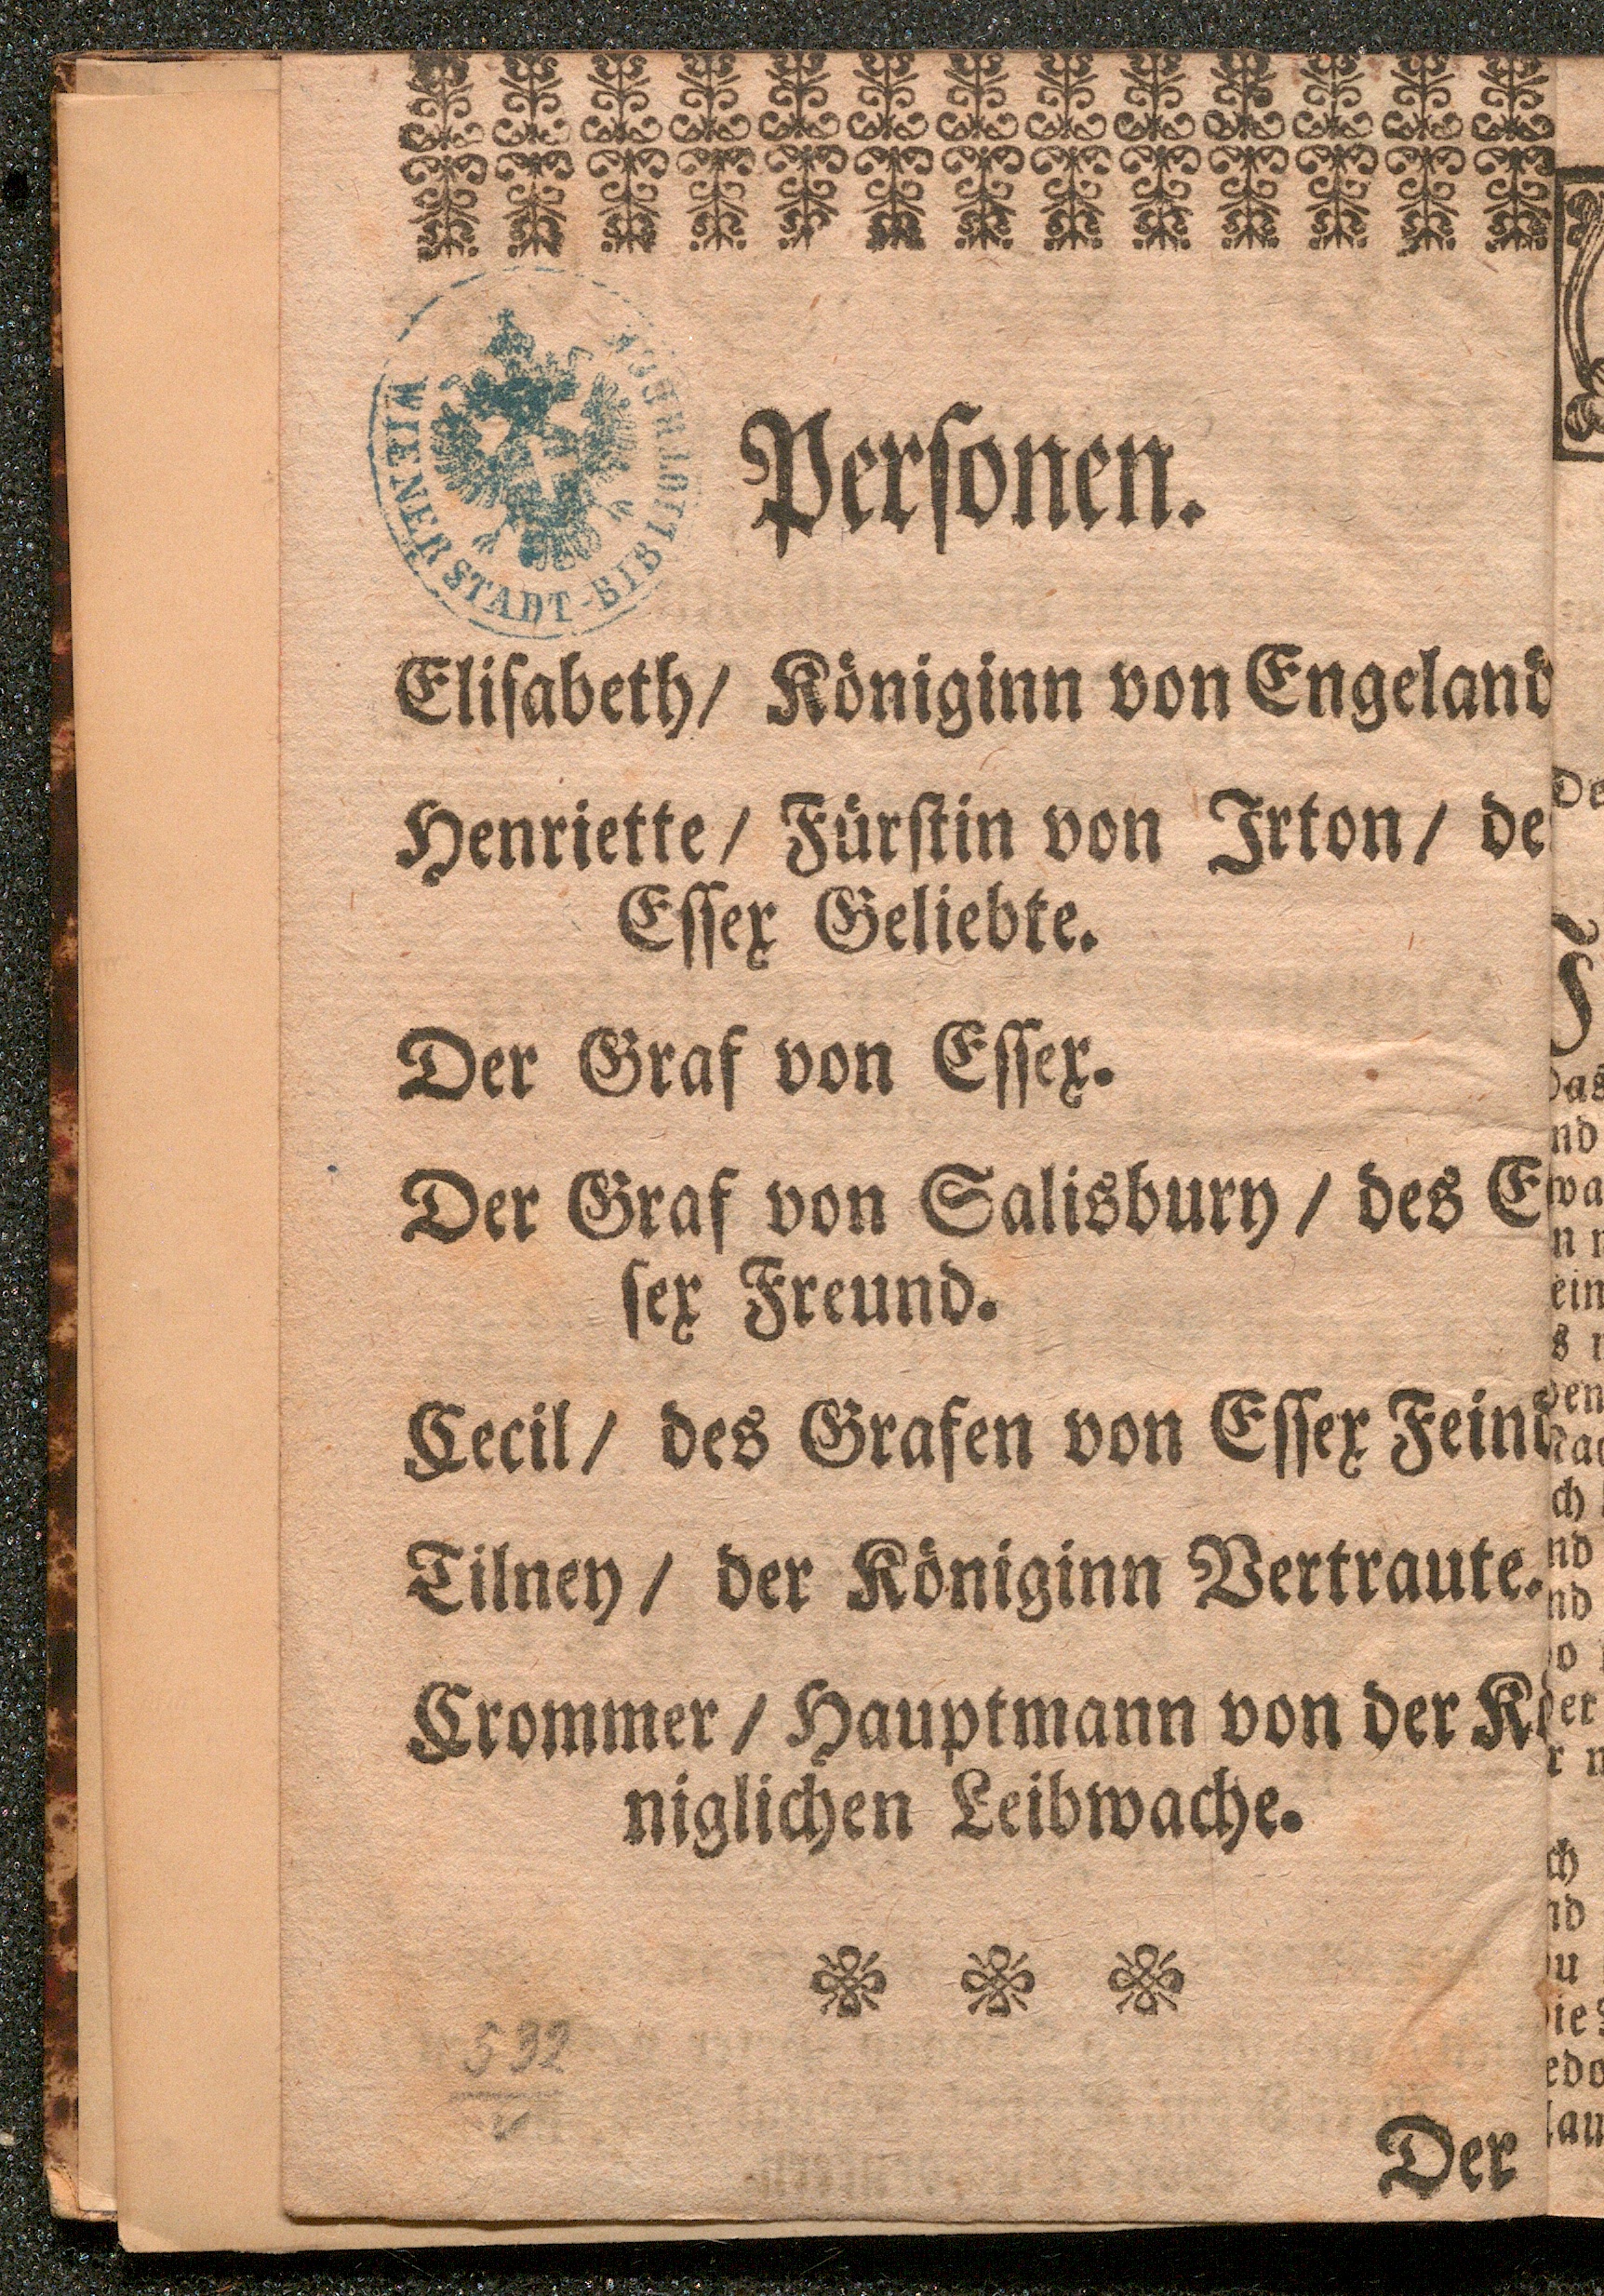 WIENER STADT-BIBLIOTHEK
Personen.
Elisabeth/ Königinn von Engeland
Henriette/ Fürstin von Irton/ de
Essex Geliebte.
Der Graf von Essex.
Der Graf von Salisbury/ des Es
sex Freund.
Cecil/ des Grafen von Essex Feind
Tilney/ der Königinn Vertraute.
Crommer/ Hauptmann von der Kö
niglichen Leibwache.
532
Der